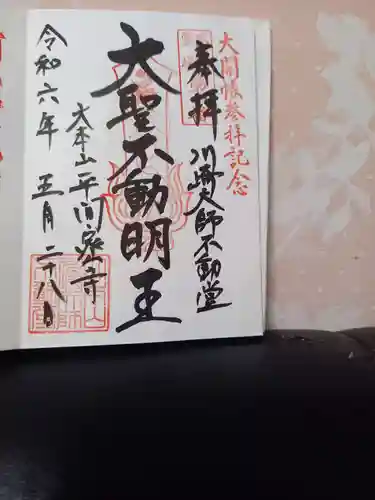 大開帳参拝記念
奉拝 川崎大師不動堂
大聖不動明王
大本山平間寺
令和六年 五月二十八日